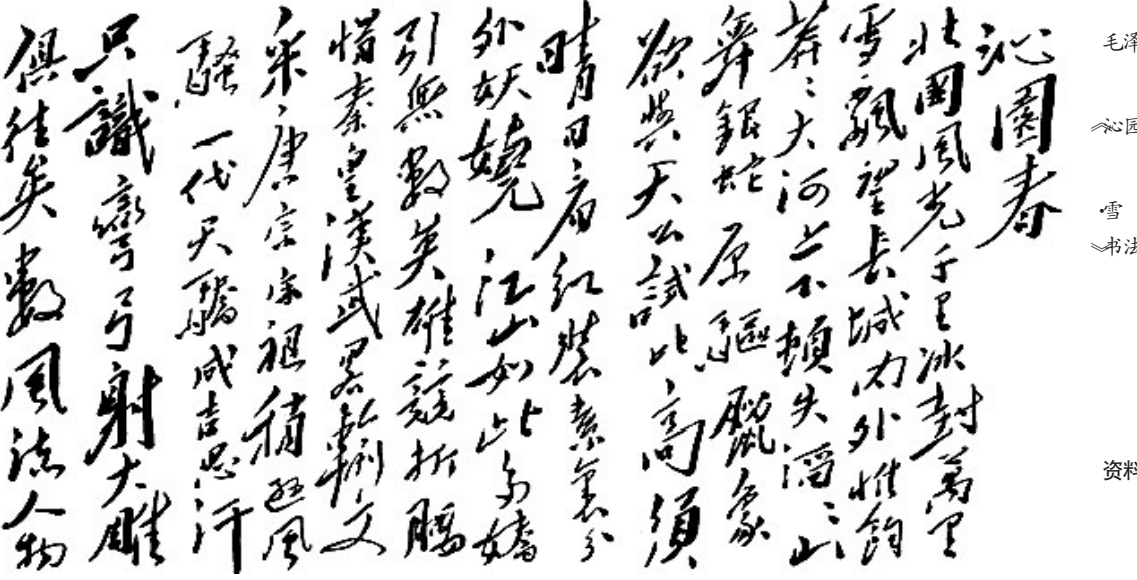 毛泽
《沁园
·雪
》书法
资料
沁園春
北國風光千里冰封萬里
雪飄望長城内外惟餘
莽〻大河上下頓失滔〻山
舞銀蛇原驅臘象
欲與天公試比高須
晴日看紅裝素裹分
外妖嬈江山如此多嬌
引無數英雄競折腰
惜秦皇漢武畧輸文
采唐宗宋祖稍遜風
騷一代天驕成吉思汗
只識彎弓射大雕
俱往矣數風流人物